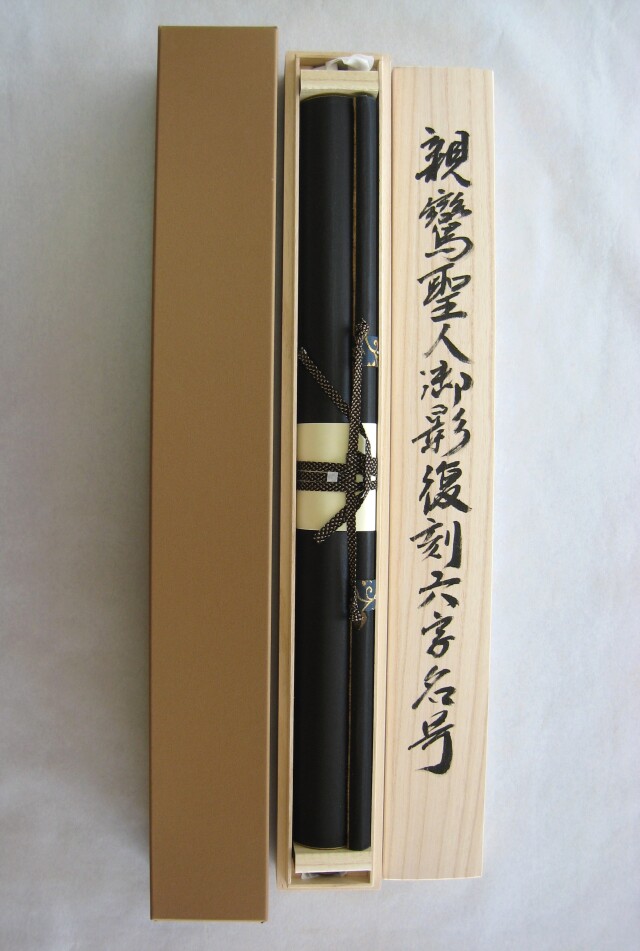 親鸞聖人御影復刻六字名号